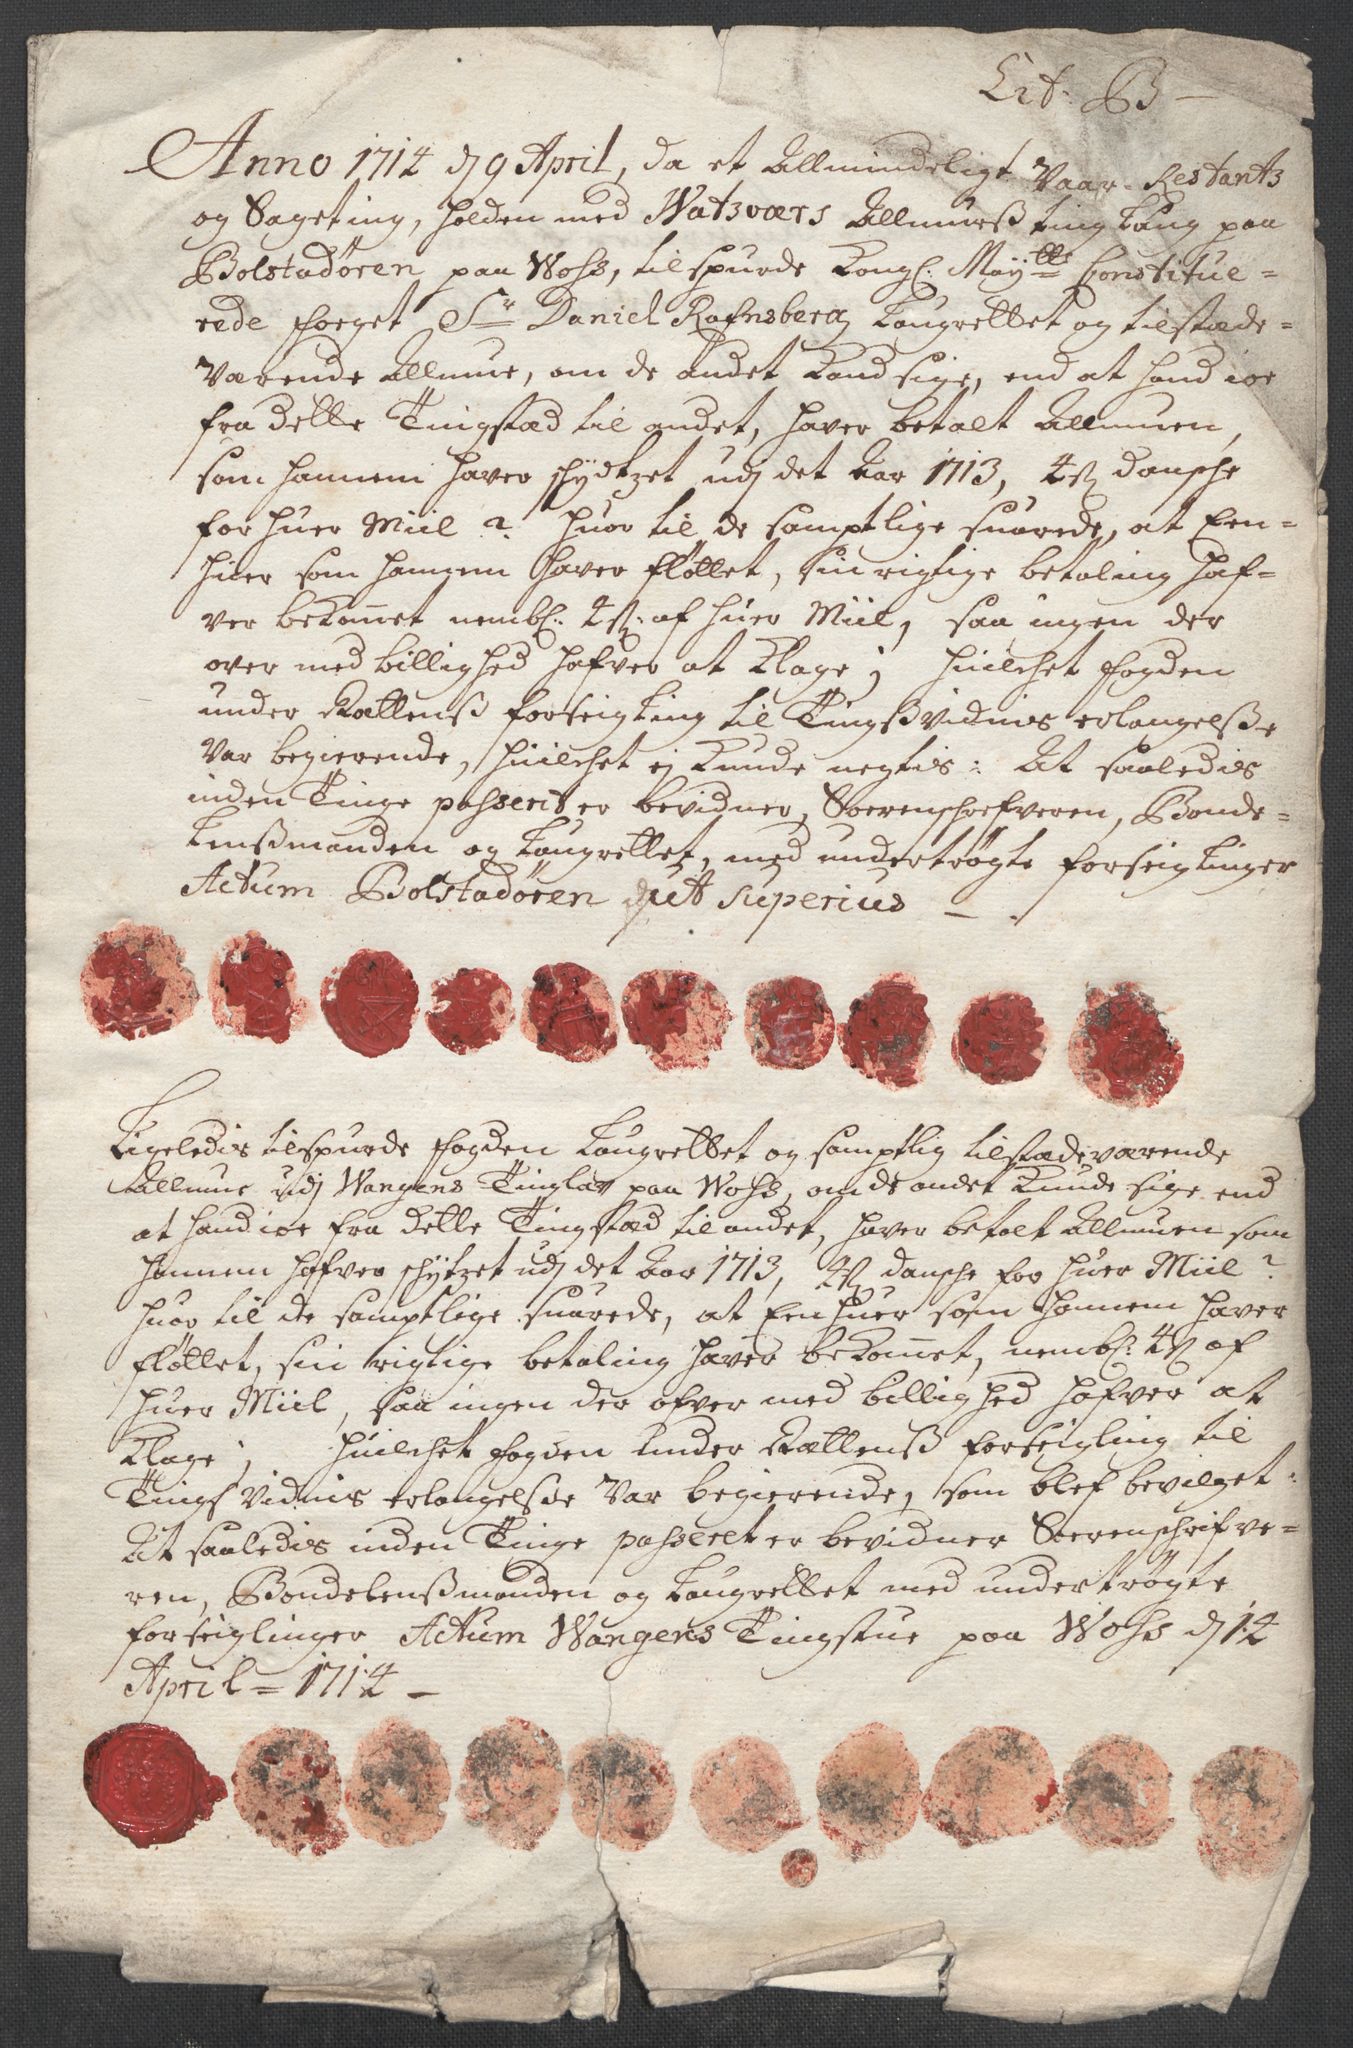 Lit: B –
Anno 1714 d 9 April, da et Allmindeligt Vaar-Restantz
og Sageting, holden med Watsværs Allmues tinglaug paa
Bolstadøren paa Wohs, tilspurde Kongl: Mayttz Constitue-
rede Foeget Sr Daniel Rafnsberg Laugrettet og tilstæde-
Værende Allmue, om de andet Kand sige, end at hand ioe
fra dette Tingstæd til andet, haver betalt Allmuen,
som hannem haver skydtzet udj det Aar 1713, 4 ß dansche
for huer Miil? huor til de samptlige suarede, at Een-
huer som hannem haver fløttet, sin rigtige betaling haf-
ver bekomet nembl: 4 ß: af huer Miil, saa ingen der
over med billighed hafver at Klage; huilchet Fogden
under Rættens forseigling til Tingsvidnis erlangelsse
Var begierende, huilchet ej Kunde negtis: At saaledis
inden Tinge passerit er bevidner, Soerenschrefveren, Bonde-
Lensmanden og Laugrettet, med undertrøgte forseiglinger
Actum Bolstadøren ut superius –
Ligeledis tilspurde Fogden Laugrettet og samptlig tilstædeværende
Allmue udj Wangens Tinglav paa Wohs, om de andet Kunde sige end
at hand ioe fra dette Tingstæd til andet, haver betalt Allmuen som
hannem hafver schytzet udj det Aar 1713, 4 ß dansche for huer Miil?
huor til de samptlige suarede, at Een huer som hannem haver
fløttet, sin rigtige betaling haver bekomet, nembl: 4 ß af
huer Miil, saa ingen der ofver med billighed hafver at
Klage; huilchet Fogden under Rættens forseigling til
Tings Vidnis erlangelsse Var begierende, som blef bevilget:
At saaledis inden Tinge passeret er bevidner Soerenschrifve-
ren, Bondelensmanden og Laugrettet med undertrøgte
forseiglinger Actum Wangens Tingstue paa Wohs d 14
April – 1714 –